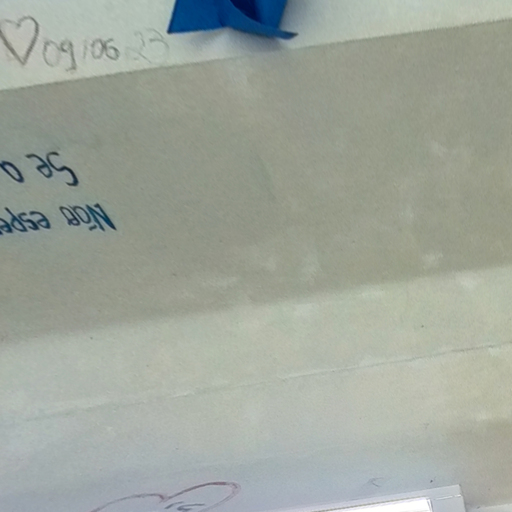 ♡ 09/06 23
Se o
Não espe